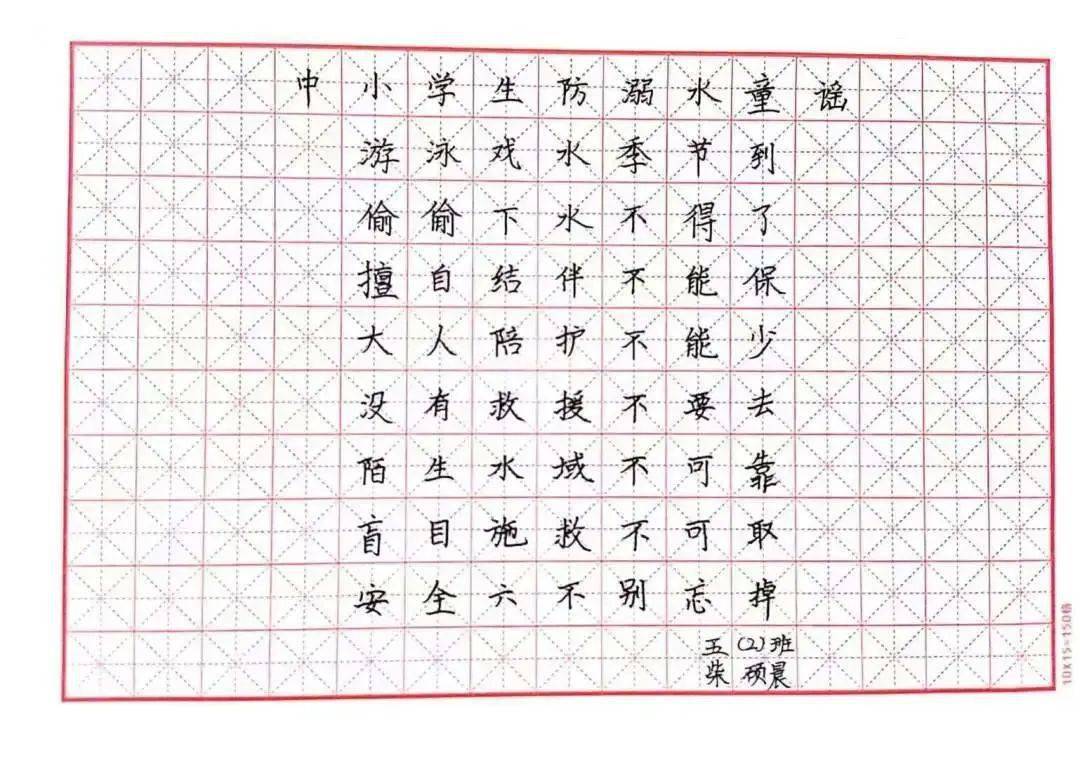 中小学生防溺水童谣
游泳戏水季节到
偷偷下水不得了
擅自结伴不能保
大人陪护不能少
没有救援不要去
陌生水域不可靠
盲目施救不可取
安全六不别忘掉
五(2)班
柴硕晨
10×15=150格